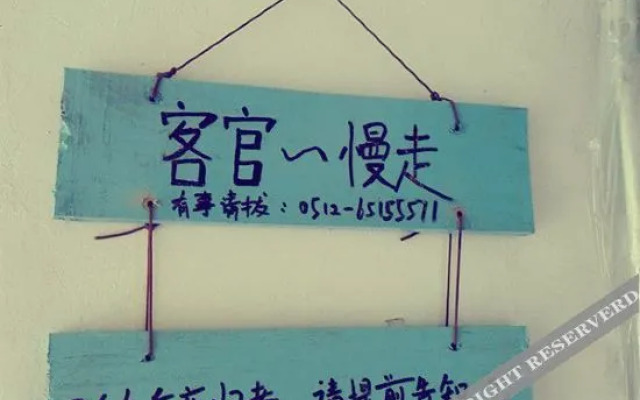 客官~慢走
有事请拨：0512-65155511
请提前告知
COPYRIGHT RESERVERD